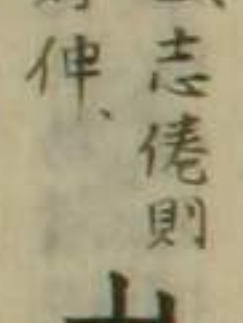 志倦則
伸、